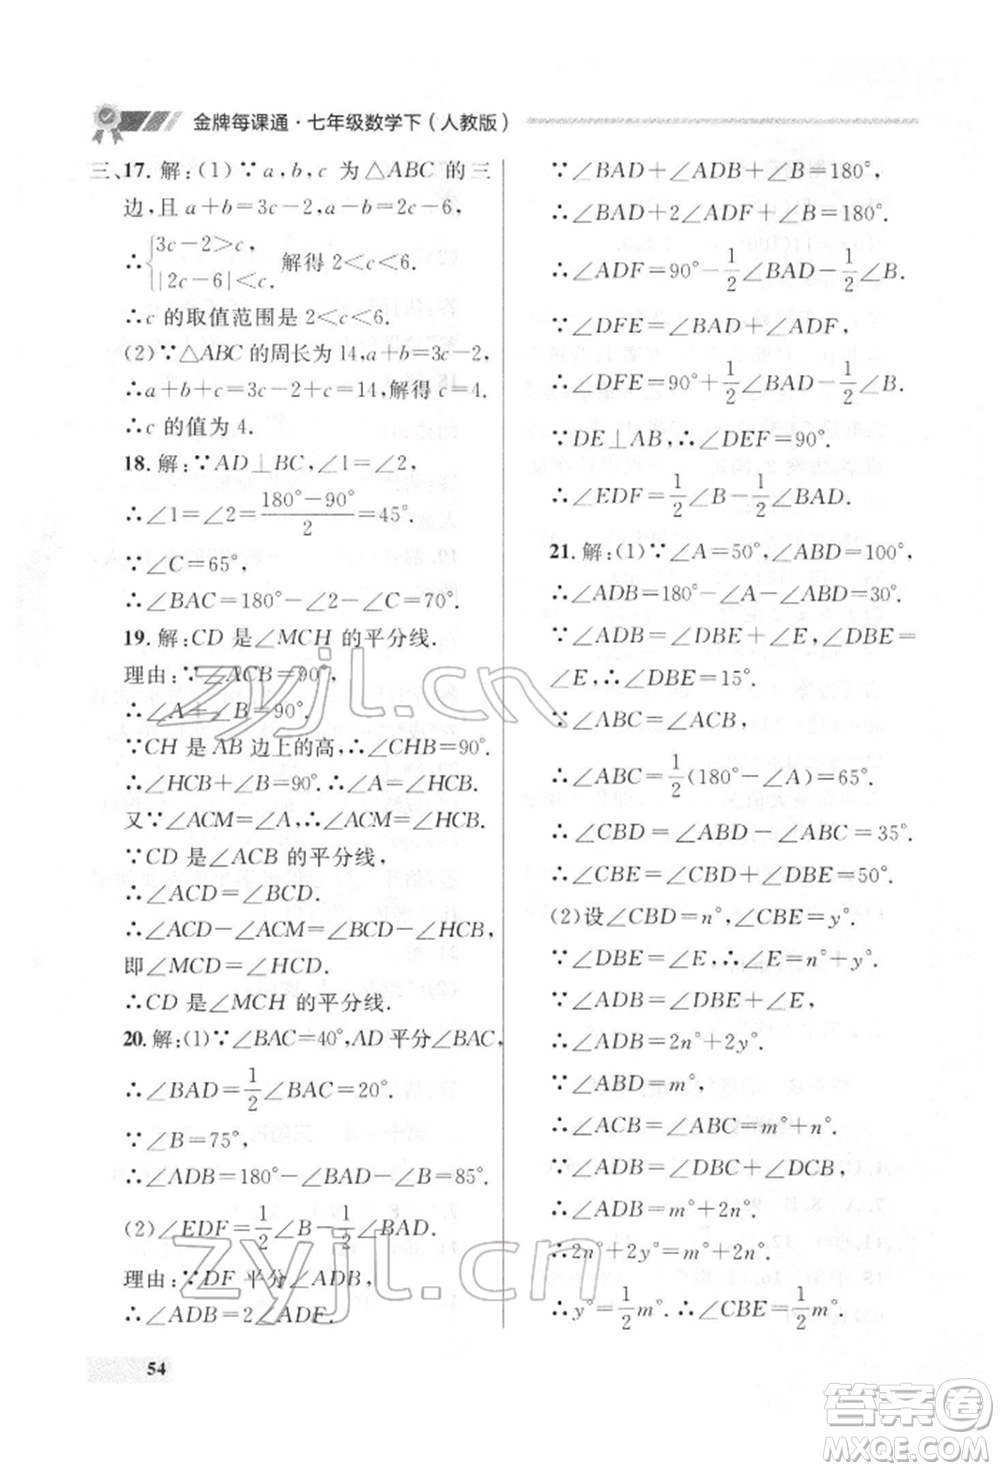 金牌每课通·七年级数学下（人教版）
三、17. 解：(1)∵a,b,c 为△ABC 的三
边,且 a+b=3c−2,a−b=2c−6,
∴{3c−2>c, |2c−6|<c. 解得 2<c<6.
∴c 的取值范围是 2<c<6.
(2)∵△ABC 的周长为 14,a+b=3c−2,
∴a+b+c=3c−2+c=14,解得 c=4.
∴c 的值为 4.
18. 解：∵AD⊥BC,∠1=∠2,
∴∠1=∠2=(180°−90°)/2=45°.
∵∠C=65°,
∴∠BAC=180°−∠1−∠C=70°.
19. 解：CD 是∠MCH 的平分线.
理由：∵∠ACB=90°,
∴∠A+∠B=90°.
∵CH 是 AB 边上的高,∴∠CHB=90°.
∴∠HCB+∠B=90°.∴∠A=∠HCB.
又∵∠ACM=∠A,∴∠ACM=∠HCB.
∵CD 是∠ACB 的平分线,
∴∠ACD=∠BCD.
∴∠ACD−∠ACM=∠BCD−∠HCB,
即∠MCD=∠HCD.
∴CD 是∠MCH 的平分线.
20. 解：(1)∵∠BAC=40°,AD 平分∠BAC,
∴∠BAD=1/2∠BAC=20°.
∵∠B=75°,
∴∠ADB=180°−∠BAD−∠B=85°.
(2)∠EDF=1/2∠B+1/2∠BAD.
理由：∵DF 平分∠ADB,
∴∠ADB=2∠ADF.
∵∠BAD+∠ADB+∠B=180°,
∴∠BAD+2∠ADF+∠B=180°.
∴∠ADF=90°−1/2∠BAD−1/2∠B.
∵∠DFE=∠BAD+∠ADF,
∴∠DFE=90°+1/2∠BAD−1/2∠B.
∵DE⊥AB,∴∠DEF=90°.
∴∠EDF=1/2∠B−1/2∠BAD.
21. 解：(1)∵∠A=50°,∠ABD=100°,
∴∠ADB=180°−∠A−∠ABD=30°.
∵∠ADB=∠DBE+∠E,∠DBE=
∠E,∴∠DBE=∠E=15°.
∵∠ABC=∠ACB,
∴∠ABC=1/2(180°−∠A)=65°.
∴∠CBD=∠ABD−∠ABC=35°.
∴∠CBE=∠CBD+∠DBE=50°.
(2)设∠CBD=n°,∠CBE=y°.
∵∠DBE=∠E,∴∠E=n°+y°.
∵∠DCB=∠DBE+∠CBD+∠E,
∴∠DCB=2n°+2y°.
∵∠ABD=m°,
∴∠ACB=∠ABC=m°+n°.
∵∠ADB=∠DBC+∠DCB,
∴∠ADB=m°+2n°.
∴2n°+2y°=m°+2n°.
∴y°=1/2m°.∴∠CBE=1/2m°.
54
zyjl.cn
zyjl.cn
答案卷
MXQE.COM